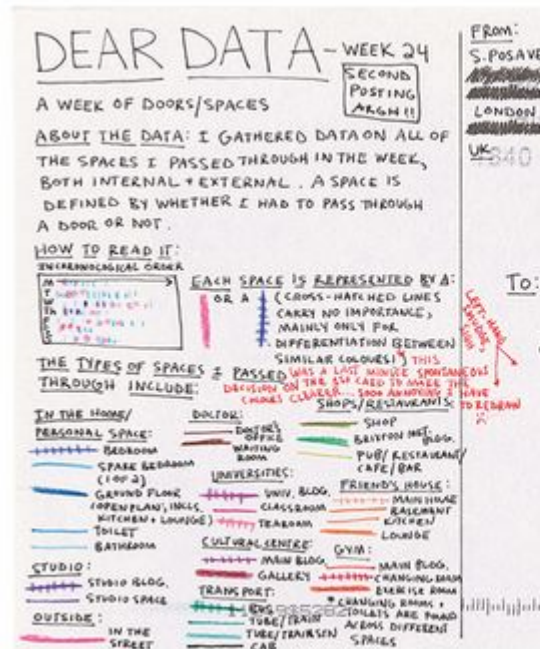 DEAR DATA - WEEK 24
SECOND
POSTING
ARGH!!
A WEEK OF DOORS/SPACES
ABOUT THE DATA: I GATHERED DATA ON ALL OF
THE SPACES I PASSED THROUGH IN THE WEEK,
BOTH INTERNAL + EXTERNAL. A SPACE IS
DEFINED BY WHETHER I HAD TO PASS THROUGH
A DOOR OR NOT.
HOW TO READ IT:
IN CHRONOLOGICAL ORDER
M
T
W
TH
F
S
S
EACH SPACE IS REPRESENTED BY A:
OR A
(CROSS-HATCHED LINES
CARRY NO IMPORTANCE,
MAINLY ONLY FOR
DIFFERENTIATION BETWEEN
SIMILAR COLOURS)
* THIS
WAS A LAST MINUTE SPONTANEOUS
DECISION ON THE 1ST CARD TO MAKE THE
COLOURS CLEARER... SOOO ANNOYING I HAVE
TO REDRAW
THE TYPES OF SPACES I PASSED
THROUGH INCLUDE:
IN THE HOME/
PERSONAL SPACE:
BEDROOM
SPARE BEDROOM
(1 OF 2)
GROUND FLOOR
(OPEN PLAN, INCLS.
KITCHEN + LOUNGE)
TOILET
BATHROOM
STUDIO:
STUDIO BLDG.
STUDIO SPACE
OUTSIDE:
IN THE
STREET
DOCTOR:
DOCTOR'S
OFFICE
WAITING
ROOM
UNIVERSITIES:
UNIV. BLDG.
CLASSROOM
TEAROOM
CULTURAL CENTRE:
MAIN BLDG.
GALLERY
TRANSPORT:
BUS
TUBE/TRAIN
TUBE/TRAIN STN
CAR
SHOPS/RESTAURANTS:
SHOP
BRIXTON MKT.
BLDG.
PUB/RESTAURANT/
CAFE/BAR
FRIEND'S HOUSE:
MAIN HOUSE
BASEMENT
KITCHEN
LOUNGE
GYM:
MAIN BLDG.
CHANGING ROOM
EXERCISE ROOM
* CHANGING ROOMS +
TOILETS ARE FOUND
ACROSS DIFFERENT
SPACES
FROM:
S. POSAVE
LONDON
UK
TO:
LEFT-HAND
SMUDGE,